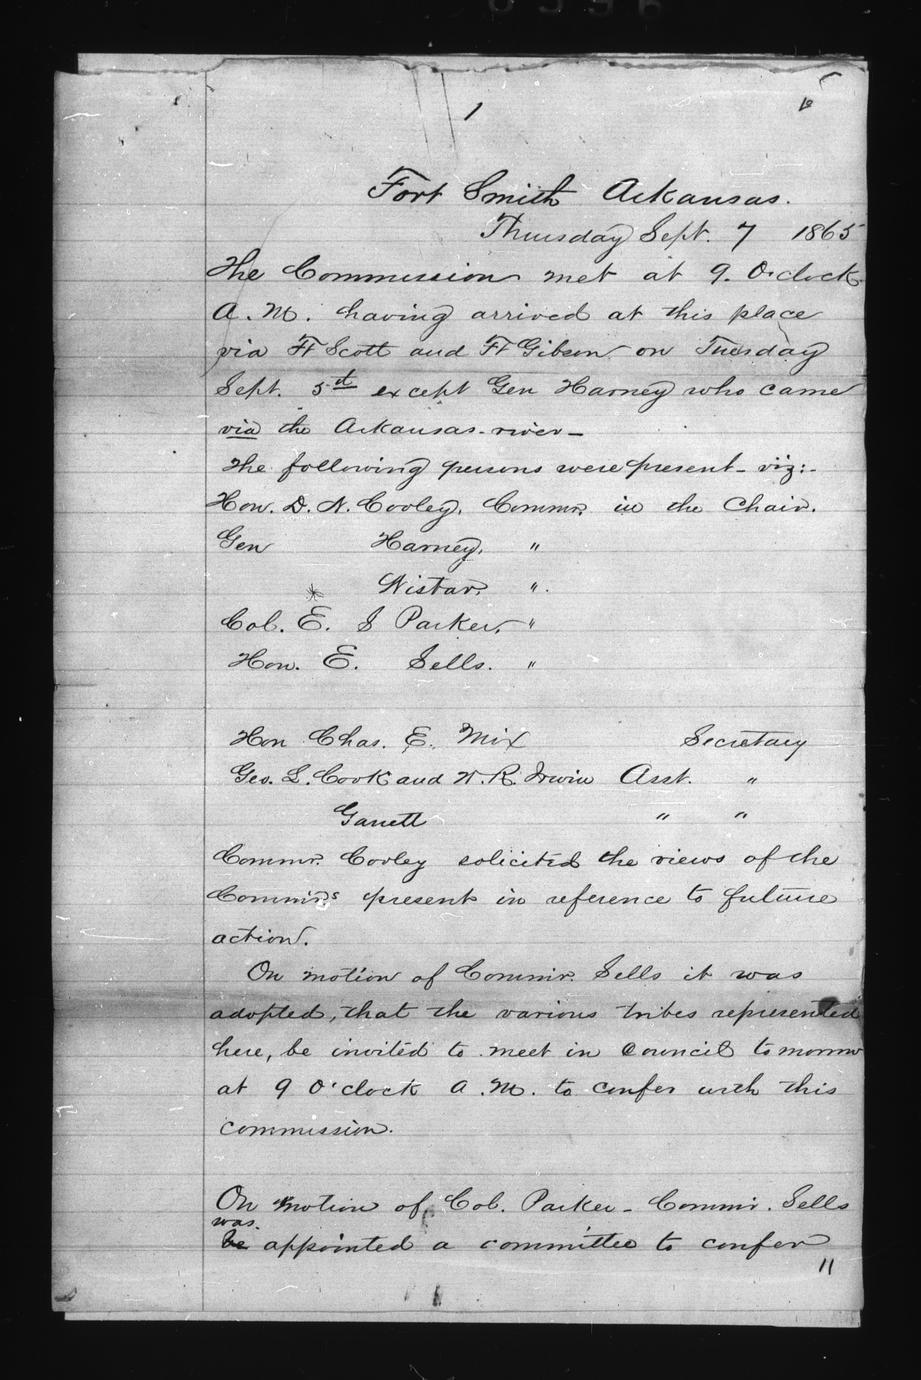 1
Fort Smith Arkansas.
Thursday Sept. 7 1865
The Commission met at 9. O'clock
A. M. having arrived at this place
via Ft Scott and Ft Gibson on Tuesday
Sept. 5th except Gen Harney who came
via the Arkansas river -
The following persons were present - viz:-
Hon. D. N. Cooley, Commr. in the Chair.
Gen Harney, "
* Wistar, ".
Col. E. S Parker, "
Hon. E. Sells. "
Hon Chas. E. Mix Secretary
Geo. L. Cook and W. R. Irwin Asst. "
Garrett " "
Commr. Cooley solicited the views of the
Commirs present in reference to future
action.
On motion of Commir. Sells it was
adopted, that the various tribes represented
here, be invited to meet in Council tomorrow
at 9 O'clock A. M. to confer with this
commission.
On motion of Col. Parker - Commir. Sells
was.
be appointed a committee to confer
11